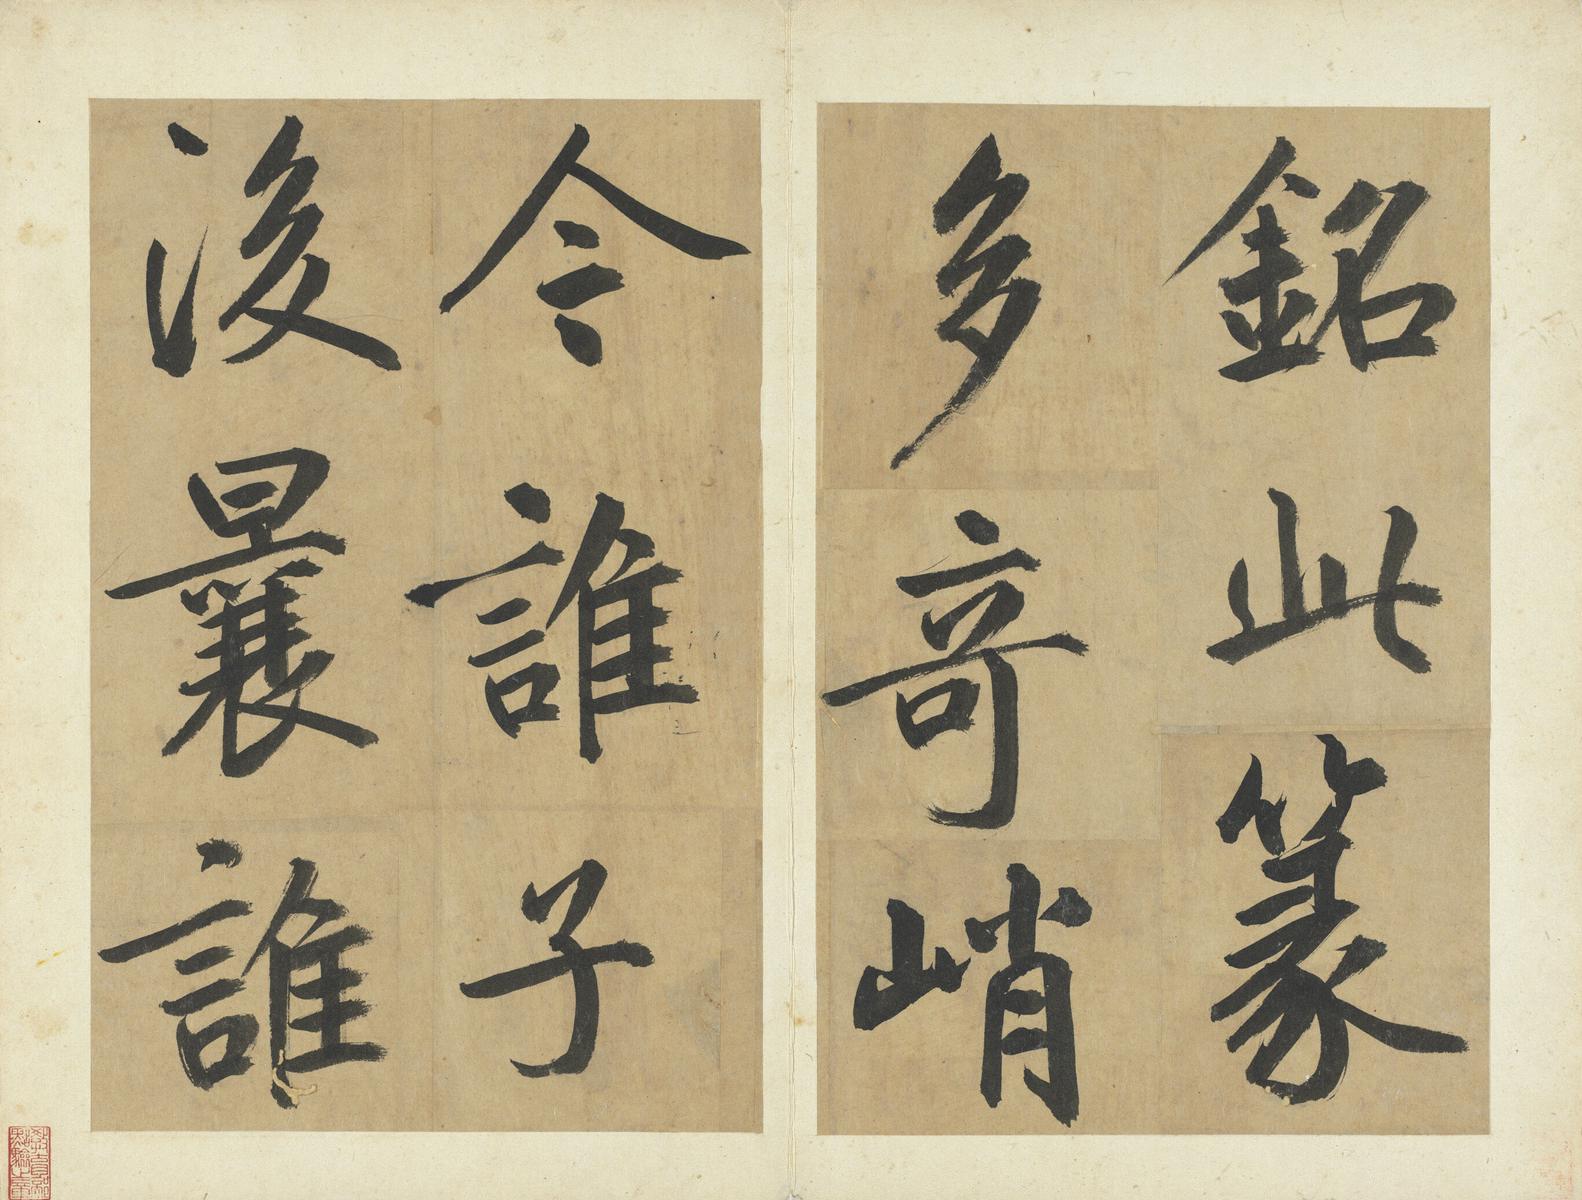 銘此篆
多奇峭
令誰子
後曩誰